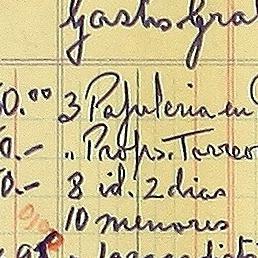 Gastos Gra
0.00 3 Papuleria en
0.- " Props. Torreo
0.- 8 id. 2 dias
10 menores